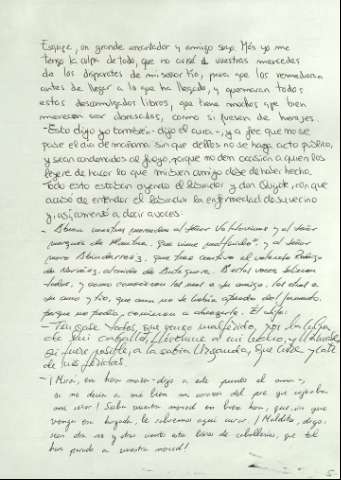 Esquife, un grande encantador y amigo suyo. Más yo me
tengo la culpa de todo, que no avisé a vuestras mercedes
de los disparates de mi señor tío, para que los remediaran
antes de llegar a lo que ha llegado, y quemaran todos
estos descomulgados libros, que tiene muchos que bien
merecen ser abrasados, como si fuesen de herejes.
-Esto digo yo también - dijo el cura -, y a fee que no se
pase el día de mañana sin que dellos no se haga acto público,
y sean condenados al fuego, porque no den ocasión a quien los
leyere de hacer lo que mi buen amigo debe de haber hecho.
Todo esto estaban oyendo el labrador y don Quijote, con que
acabó de entender el labrador la enfermedad de su vecino
y, así, comenzó a decir a voces:
- Abran vuestras mercedes al señor Valdovinos y al señor
marqués de Mantua, que viene malferido, y al señor
moro Abindarráez, que trae cautivo el valeroso Rodrigo
de Narváez, alcaide de Antequera. A estas voces salieron
todos, y como conocieron los unos a su amigo, las otras a
su amo y tío, que aun no se había apeado del jumento,
porque no podía, corrieron a abrazarle. Él dijo:
- Ténganse todos, que vengo malferido, por la culpa
de mi caballo. Llévenme a mi lecho, y llámese,
si fuere posible, a la sabia Urganda, que cure y cate
de mis feridas.
- ¡Mirá, en hora maza - dijo a este punto el ama -,
si me decía a mí bien mi corazón del pie que cojeaba
mi señor! Suba vuestra merced en buen hora, que, sin que
venga esa hurgada, le sabremos aquí curar. ¡Malditos, digo,
sean otra vez y otras ciento estos libros de caballerías, que tal
han parado a vuestra merced!
5